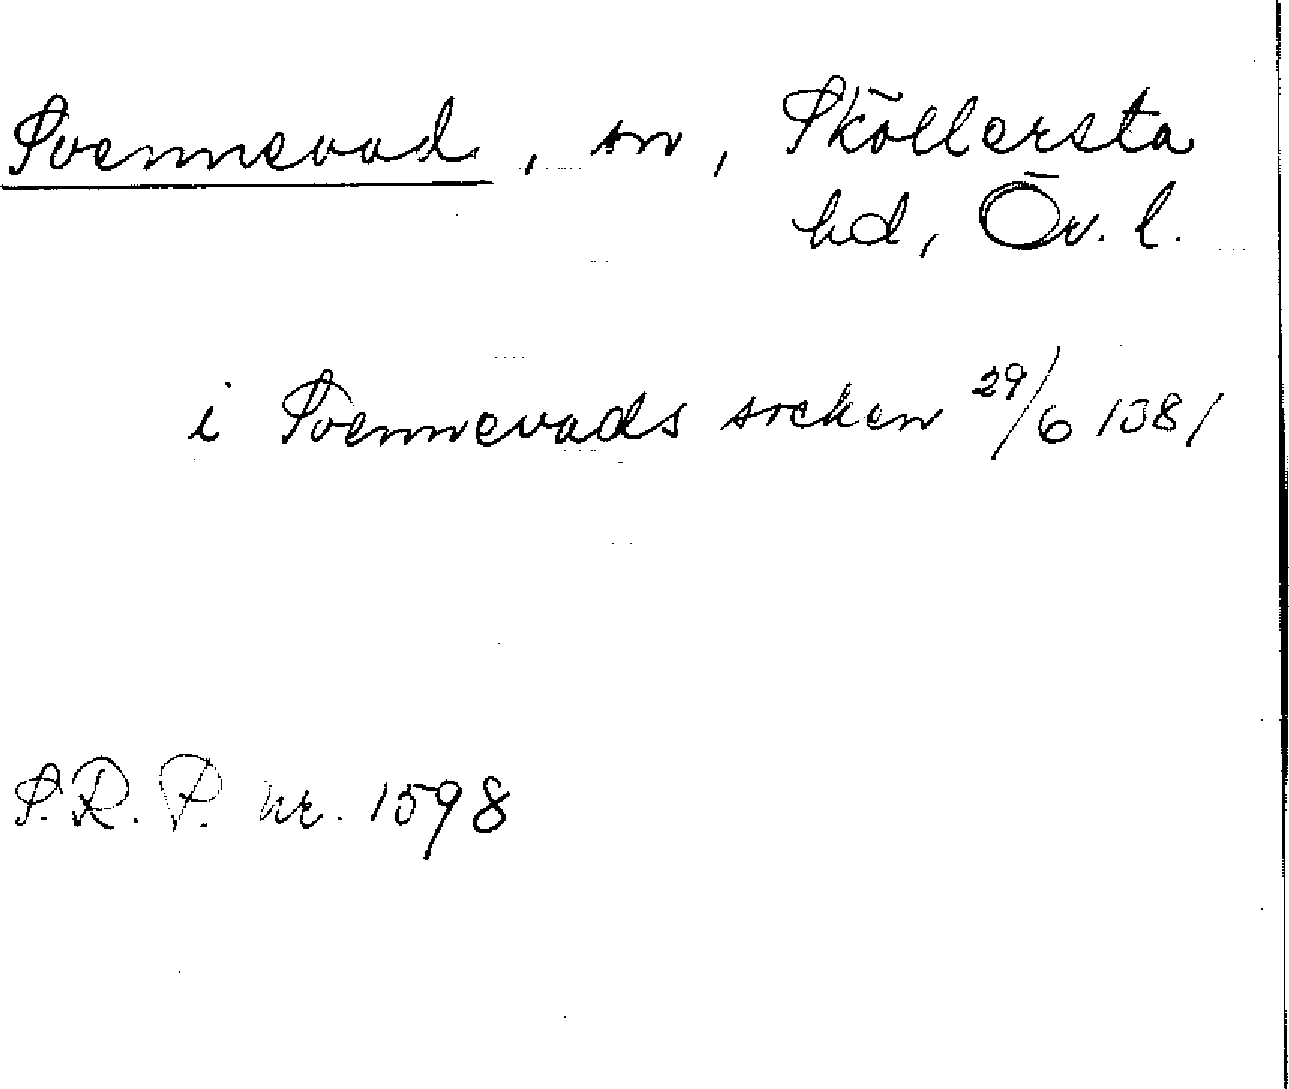 Svennevad, sn, Sköllersta
hd, Öv. l.
i Svennevads socken 29/6 1381
S.R.P. nr. 1598